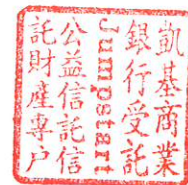 凱基商業
銀行受託
Jumpstart
公益信託信
託財産專户